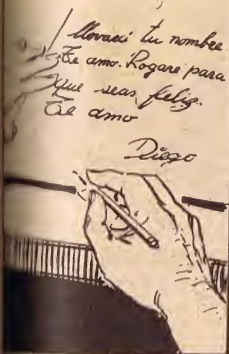 llevaré tu nombre.
Te amo. Rogaré para
que seas feliz.
Te amo
Diego